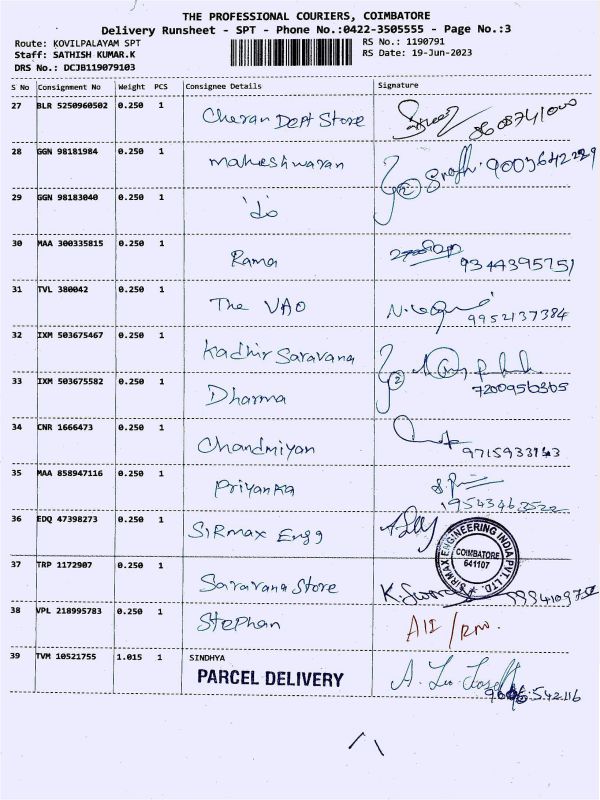 THE PROFESSIONAL COURIERS, COIMBATORE
Delivery Runsheet - SPT - Phone No.:0422-3505555 - Page No.:3
Route: KOVILPALAYAM SPT
Staff: SATHISH KUMAR.K
DRS No.: DCJB119079103
RS No.: 1190791
RS Date: 19-Jun-2023
S No Consignment No Weight PCS Consignee Details Signature
27 BLR 5250960502 0.250 1 Cheran Dept Store
28 GGN 98181984 0.250 1 Maheshwaran 9003642229
29 GGN 98183040 0.250 1 'do
30 MAA 300335815 0.250 1 Rama 9344395751
31 TVL 380042 0.250 1 The VAO 9952137384
32 IXM 503675467 0.250 1 Kadhir Saravana
33 IXM 503675582 0.250 1 Dharma 7200956365
34 CNR 1666473 0.250 1 Chandmiyan 9715933143
35 MAA 858947116 0.250 1 Priyanka
36 EDQ 47398273 0.250 1 SiRmax Engg
SIRMAX ENGINEERING INDIA PVT. LTD.
COIMBATORE
641107
37 TRP 1172907 0.250 1 Saravana Store
38 VPL 218995783 0.250 1 Stephan
39 TVM 10521755 1.015 1 SINDHYA
PARCEL DELIVERY